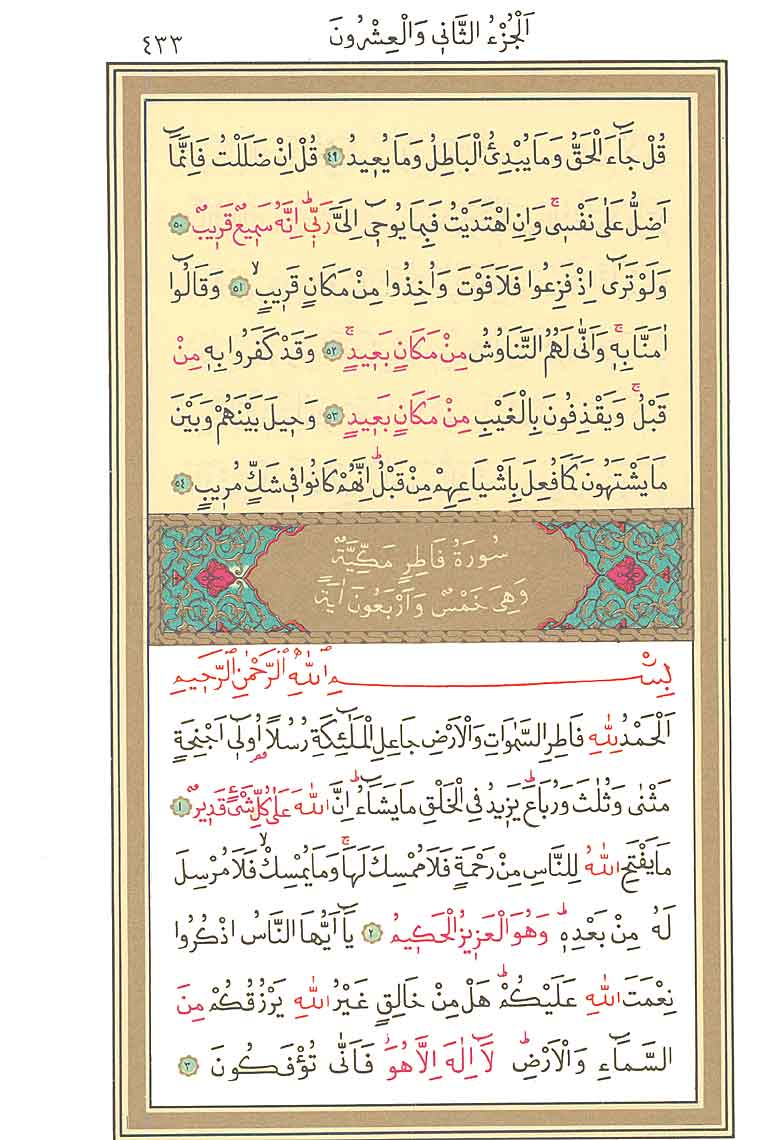 اَلْجُزْءُ الثَّانٖي وَالْعِشْرُونَ
٤٣٣
قُلْ جَٓاءَ الْحَقُّ وَمَا يُبْدِئُ الْبَاطِلُ وَمَا يُعٖيدُ ٤٩ قُلْ اِنْ ضَلَلْتُ فَاِنَّمَٓا
اَضِلُّ عَلٰى نَفْسٖيۚ وَاِنِ اهْتَدَيْتُ فَبِمَا يُوحٖٓي اِلَيَّ رَبّٖيؕ اِنَّهُ سَمٖيعٌ قَرٖيبٌ ٥٠
وَلَوْ تَرٰٓى اِذْ فَزِعُوا فَلَا فَوْتَ وَاُخِذُوا مِنْ مَكَانٍ قَرٖيبٍۙ ٥١ وَقَالُٓوا
اٰمَنَّا بِهٖۚ وَاَنّٰى لَهُمُ التَّنَاوُشُ مِنْ مَكَانٍ بَعٖيدٍۚ ٥٢ وَقَدْ كَفَرُوا بِهٖ مِنْ
قَبْلُۚ وَيَقْذِفُونَ بِالْغَيْبِ مِنْ مَكَانٍ بَعٖيدٍ ٥٣ وَحٖيلَ بَيْنَهُمْ وَبَيْنَ
مَا يَشْتَهُونَ كَمَا فُعِلَ بِاَشْيَاعِهِمْ مِنْ قَبْلُؕ اِنَّهُمْ كَانُوا فٖي شَكٍّ مُرٖيبٍ ٥٤
سُورَةُ فَاطِرٍ مَكِّيَّةٌ
وَهِيَ خَمْسٌ وَاَرْبَعُونَ اٰيَةً
بِسْمِ اللّٰهِ الرَّحْمٰنِ الرَّحٖيمِ
اَلْحَمْدُ لِلّٰهِ فَاطِرِ السَّمٰوَاتِ وَالْاَرْضِ جَاعِلِ الْمَلٰٓئِكَةِ رُسُلًا اُولٖٓي اَجْنِحَةٍ
مَثْنٰى وَثُلٰثَ وَرُبَاعَؕ يَزٖيدُ فِي الْخَلْقِ مَا يَشَٓاءُؕ اِنَّ اللّٰهَ عَلٰى كُلِّ شَيْءٍ قَدٖيرٌ ١
مَا يَفْتَحِ اللّٰهُ لِلنَّاسِ مِنْ رَحْمَةٍ فَلَا مُمْسِكَ لَهَاۚ وَمَا يُمْسِكْۙ فَلَا مُرْسِلَ
لَهُ مِنْ بَعْدِهٖؕ وَهُوَ الْعَزٖيزُ الْحَكٖيمُ ٢ يَٓا اَيُّهَا النَّاسُ اذْكُرُوا
نِعْمَتَ اللّٰهِ عَلَيْكُمْؕ هَلْ مِنْ خَالِقٍ غَيْرُ اللّٰهِ يَرْزُقُكُمْ مِنَ
السَّمَٓاءِ وَالْاَرْضِؕ لَٓا اِلٰهَ اِلَّا هُوَؗ فَاَنّٰى تُؤْفَكُونَ ٣